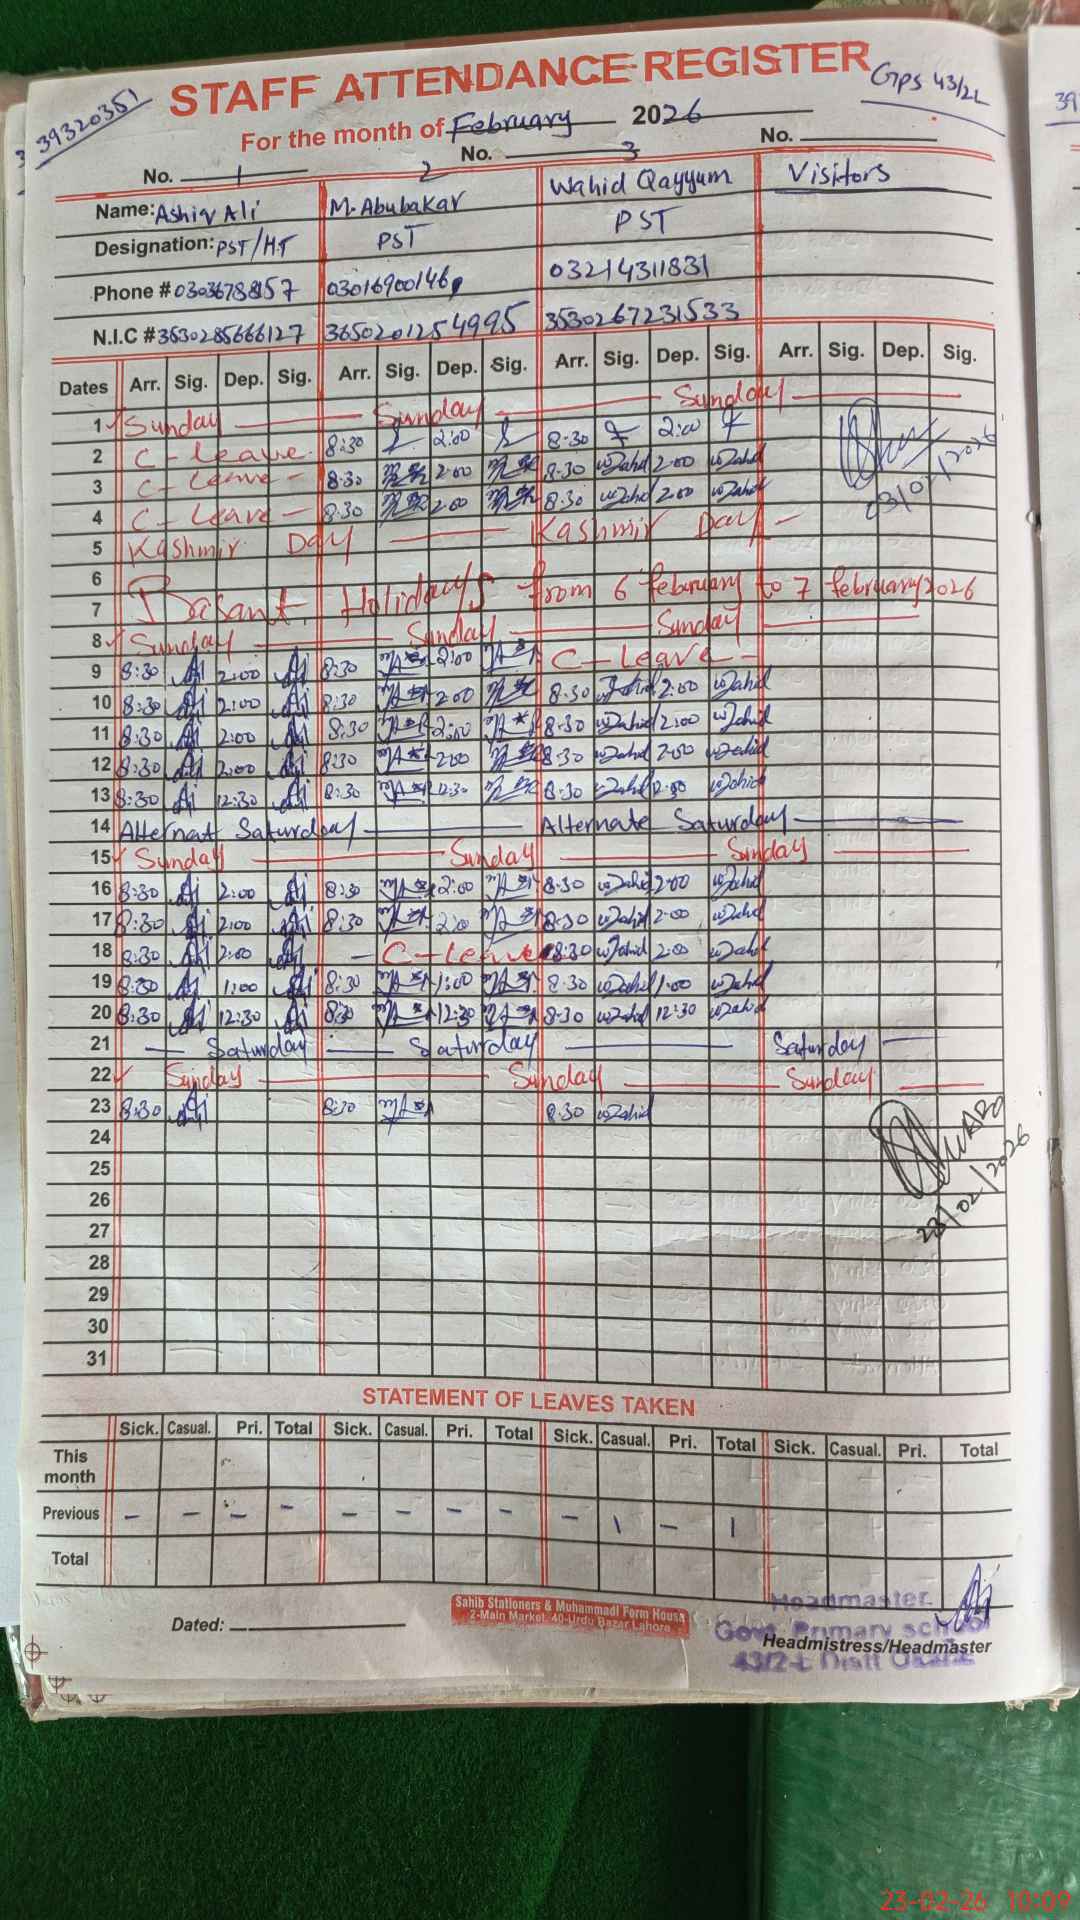 39320351
STAFF ATTENDANCE REGISTER
Gps 43/2L
For the month of February 2026
No. 1 No. 2 3 No.
Name: Ashiq Ali M. Abubakar Wahid Qayyum Visitors
Designation: PST/H.T PST PST
Phone # 03016900146 03214311831
N.I.C # 3530285666127 3650201254995 3530267231533
Dates Arr. Sig. Dep. Sig. Arr. Sig. Dep. Sig. Arr. Sig. Dep. Sig. Arr. Sig. Dep. Sig.
1 Sunday Sunday Sunday
2 C-Leave 8:30 2:00 8:30 2:00
3 C-Leave 8:30 2:00 8:30 wahid 2:00 wahid
4 C-Leave 8:30 2:00 8:30 wahid 2:00 wahid
5 Kashmir Day Kashmir Day
6
7 Basant Holidays from 6 february to 7 february 2026
8 Sunday Sunday Sunday
9 8:30 2:00 8:30 2:00 C-Leave
10 8:30 2:00 8:30 2:00 8:30 wahid 2:00 wahid
11 8:30 2:00 8:30 2:00 8:30 wahid 2:00 wahid
12 8:30 2:00 8:30 2:00 8:30 wahid 2:00 wahid
13 8:30 12:30 8:30 12:30 8:30 wahid wahid
14 Alternat Saturday Alternate Saturday
15 Sunday Sunday Sunday
16 8:30 2:00 8:30 2:00 8:30 wahid 2:00 wahid
17 8:30 2:00 8:30 2:00 8:30 wahid 2:00 wahid
18 8:30 2:00 C-Leave 8:30 wahid 2:00 wahid
19 8:30 1:00 8:30 1:00 8:30 wahid 1:00 wahid
20 8:30 12:30 8:30 12:30 8:30 wahid 12:30 wahid
21 Saturday Saturday Saturday
22 Sunday Sunday Sunday
23 8:30 8:30 8:30 wahid
24
23/02/2026
25
26
27
28
29
30
31
STATEMENT OF LEAVES TAKEN
Sick. Casual. Pri. Total Sick. Casual. Pri. Total Sick. Casual. Pri. Total Sick. Casual. Pri. Total
This month
Previous - - - - - - - - - 1 - 1
Total
Dated:
Sahib Stationers & Muhammadi Form House
2-Main Market, 40-Urdu Bazar Lahore
Headmaster
Govt. Primary school
Headmistress/Headmaster
43/2-L Distt Okara
23-02-26 10:09